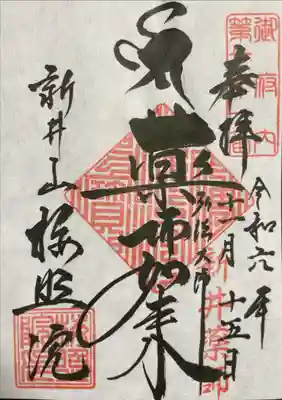 御府内
第
奉拝
令和六年
十一月十五日
新井薬師
弘法大師
薬師如来
新井山梅照院